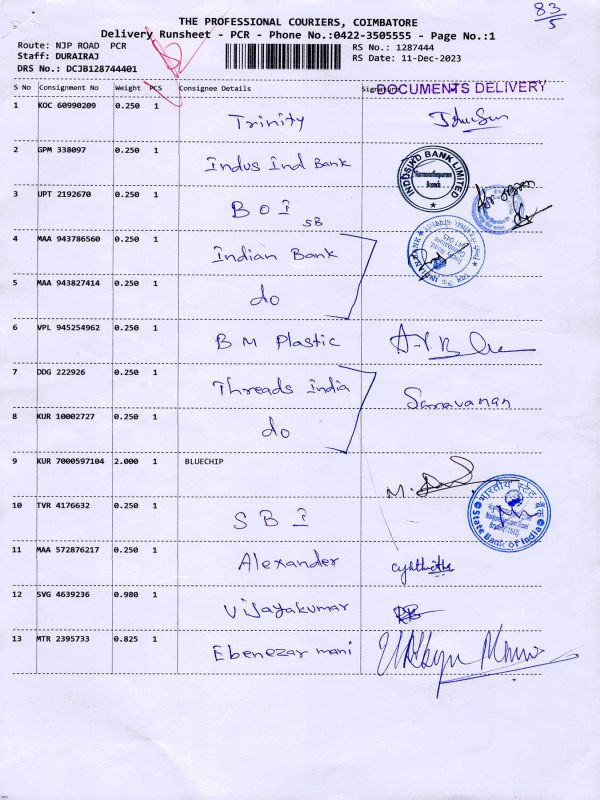 83
5
THE PROFESSIONAL COURIERS, COIMBATORE
Delivery Runsheet - PCR - Phone No.:0422-3505555 - Page No.:1
Route: NJP ROAD PCR
RS No.: 1287444
Staff: DURAIRAJ
RS Date: 11-Dec-2023
DRS No.: DCJB128744401
DOCUMENTS DELIVERY
S No Consignment No Weight PCS Consignee Details Signature
1 KOC 60990209 0.250 1 Trinity
2 GPM 338097 0.250 1 Indus Ind Bank
INDUSIND BANK LIMITED
Branch
3 UPT 2192670 0.250 1 BOI
SB
4 MAA 943786560 0.250 1 Indian Bank
5 MAA 943827414 0.250 1 do
6 VPL 945254962 0.250 1 BM Plastic
7 DDG 222926 0.250 1 Threads India
Saravanan
8 KUR 10002727 0.250 1 do
9 KUR 7000597104 2.000 1 BLUECHIP
10 TVR 4176632 0.250 1 SBI
भारतीय स्टेट बैंक
State Bank of India
11 MAA 572876217 0.250 1 Alexander
12 SVG 4639236 0.980 1 Vijayakumar
13 MTR 2395733 0.825 1 Ebenezar mani